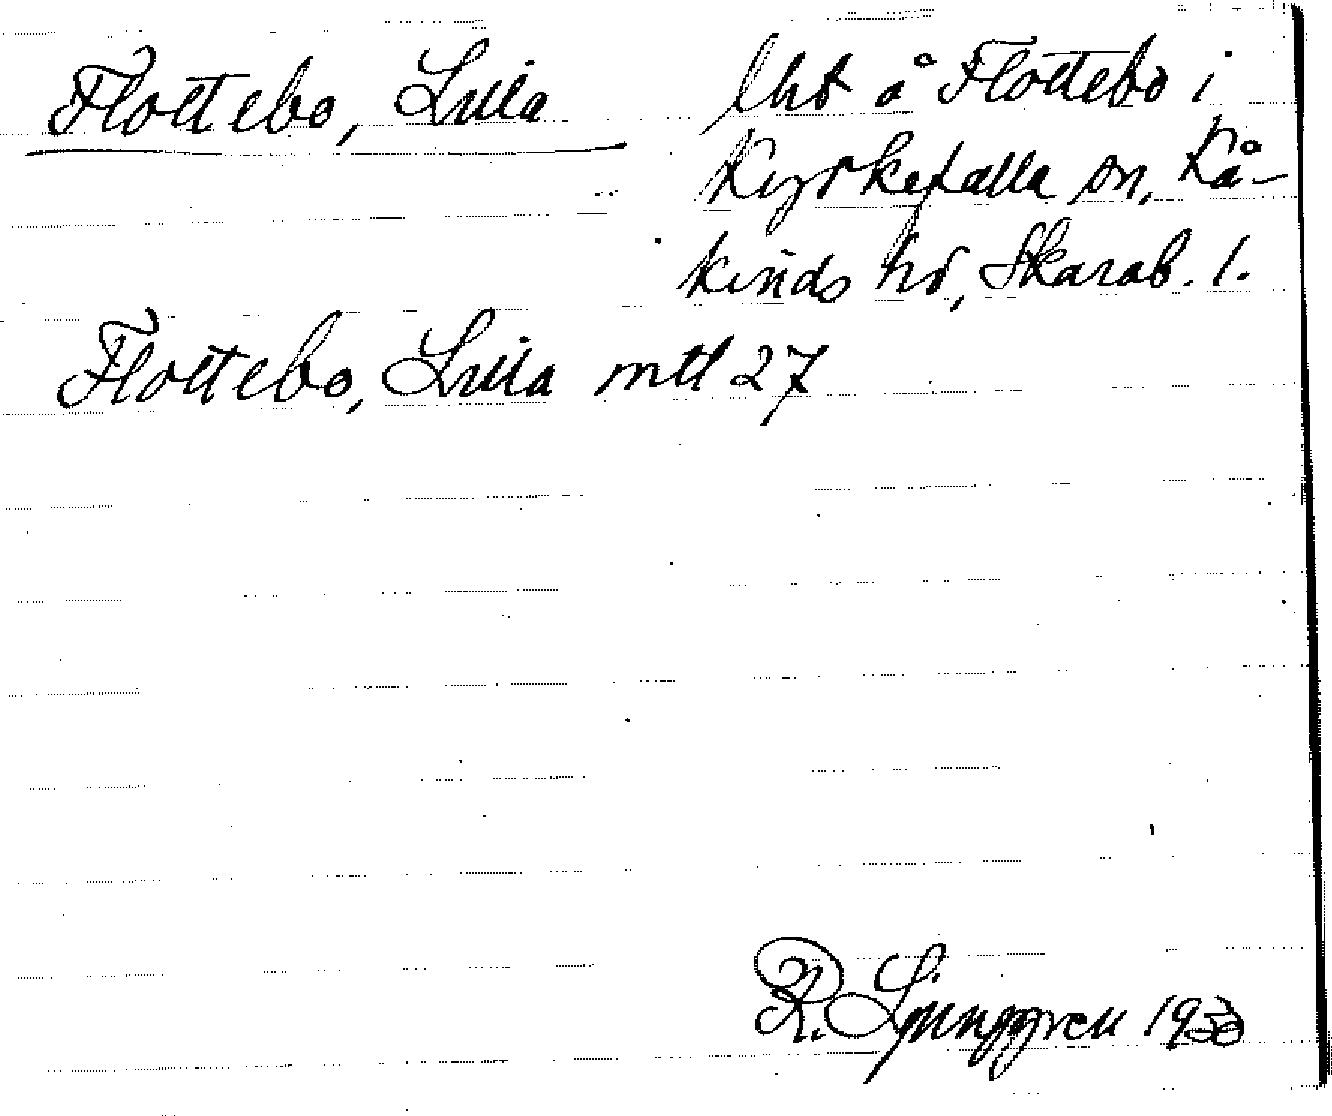 Flottebo, Lilla
lht å Flottebo i
Kyrkefalla sn, Kå-
kinds hd, Skarab. l.
Flottebo, Lilla mtl 27
R. Ljunggren 1930